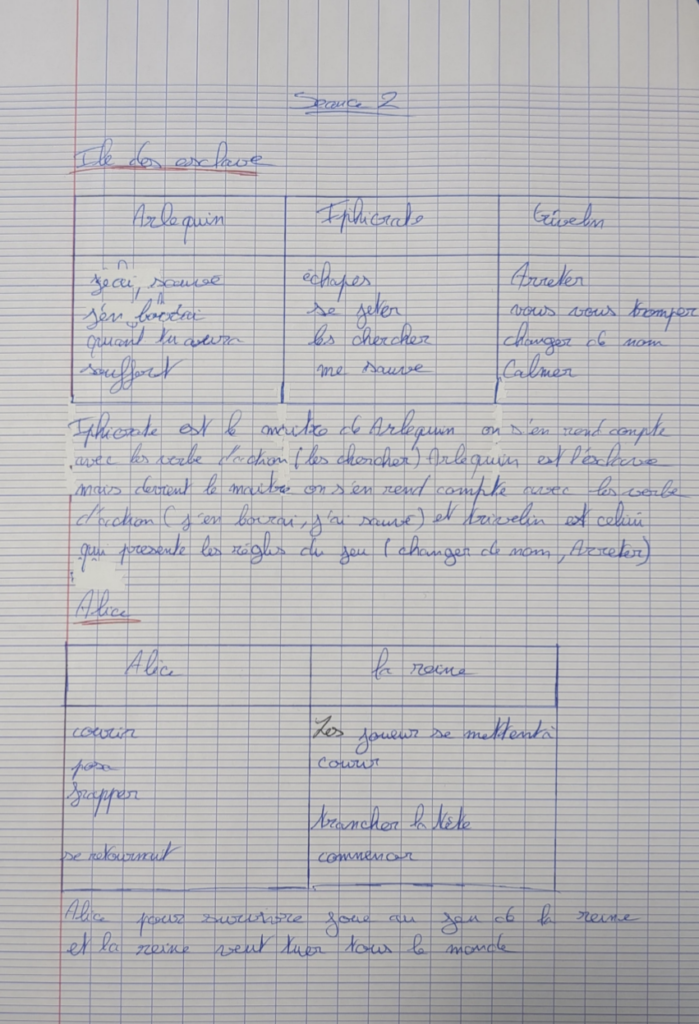 Seance 2
Ile des esclave
Arlequin Iphicrate trivelin
sauvé échapes Arreter
j'en boirai se jeter vous vous tromper
quant tu aura les chercher changer de nom
souffert me sauve Calmer
Iphicrate est le maitre de Arlequin on s'en rend compte
avec les verbe d'action (les chercher) Arlequin est l'esclave
mais devient le maitre on s'en rend compte avec les verbe
d'action (j'en boirai, j'ai sauvé) et trivelin est celui
qui presente les règles du jeu (changer de nom, Arreter)
Alice
Alice la reine
courir Les joueur se mettent à
posa courir
frapper
trancher la tête
se retournait commencer
Alice pour survivre joue au jeu de la reine
et la reine veut tuer tous le monde